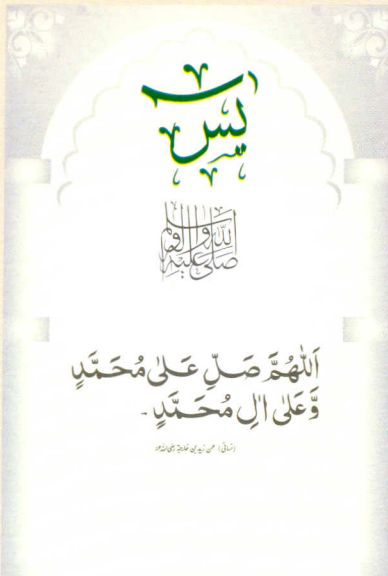 يٰسٓ
صَلَّى اللّٰهُ عَلَيْهِ وَاٰلِهٖ وَسَلَّمَ
اَللّٰهُمَّ صَلِّ عَلٰى مُحَمَّدٍ
وَّعَلٰى اٰلِ مُحَمَّدٍ۔
(نسائی) عن زید بن خارجۃ رضی اللہ عنہ